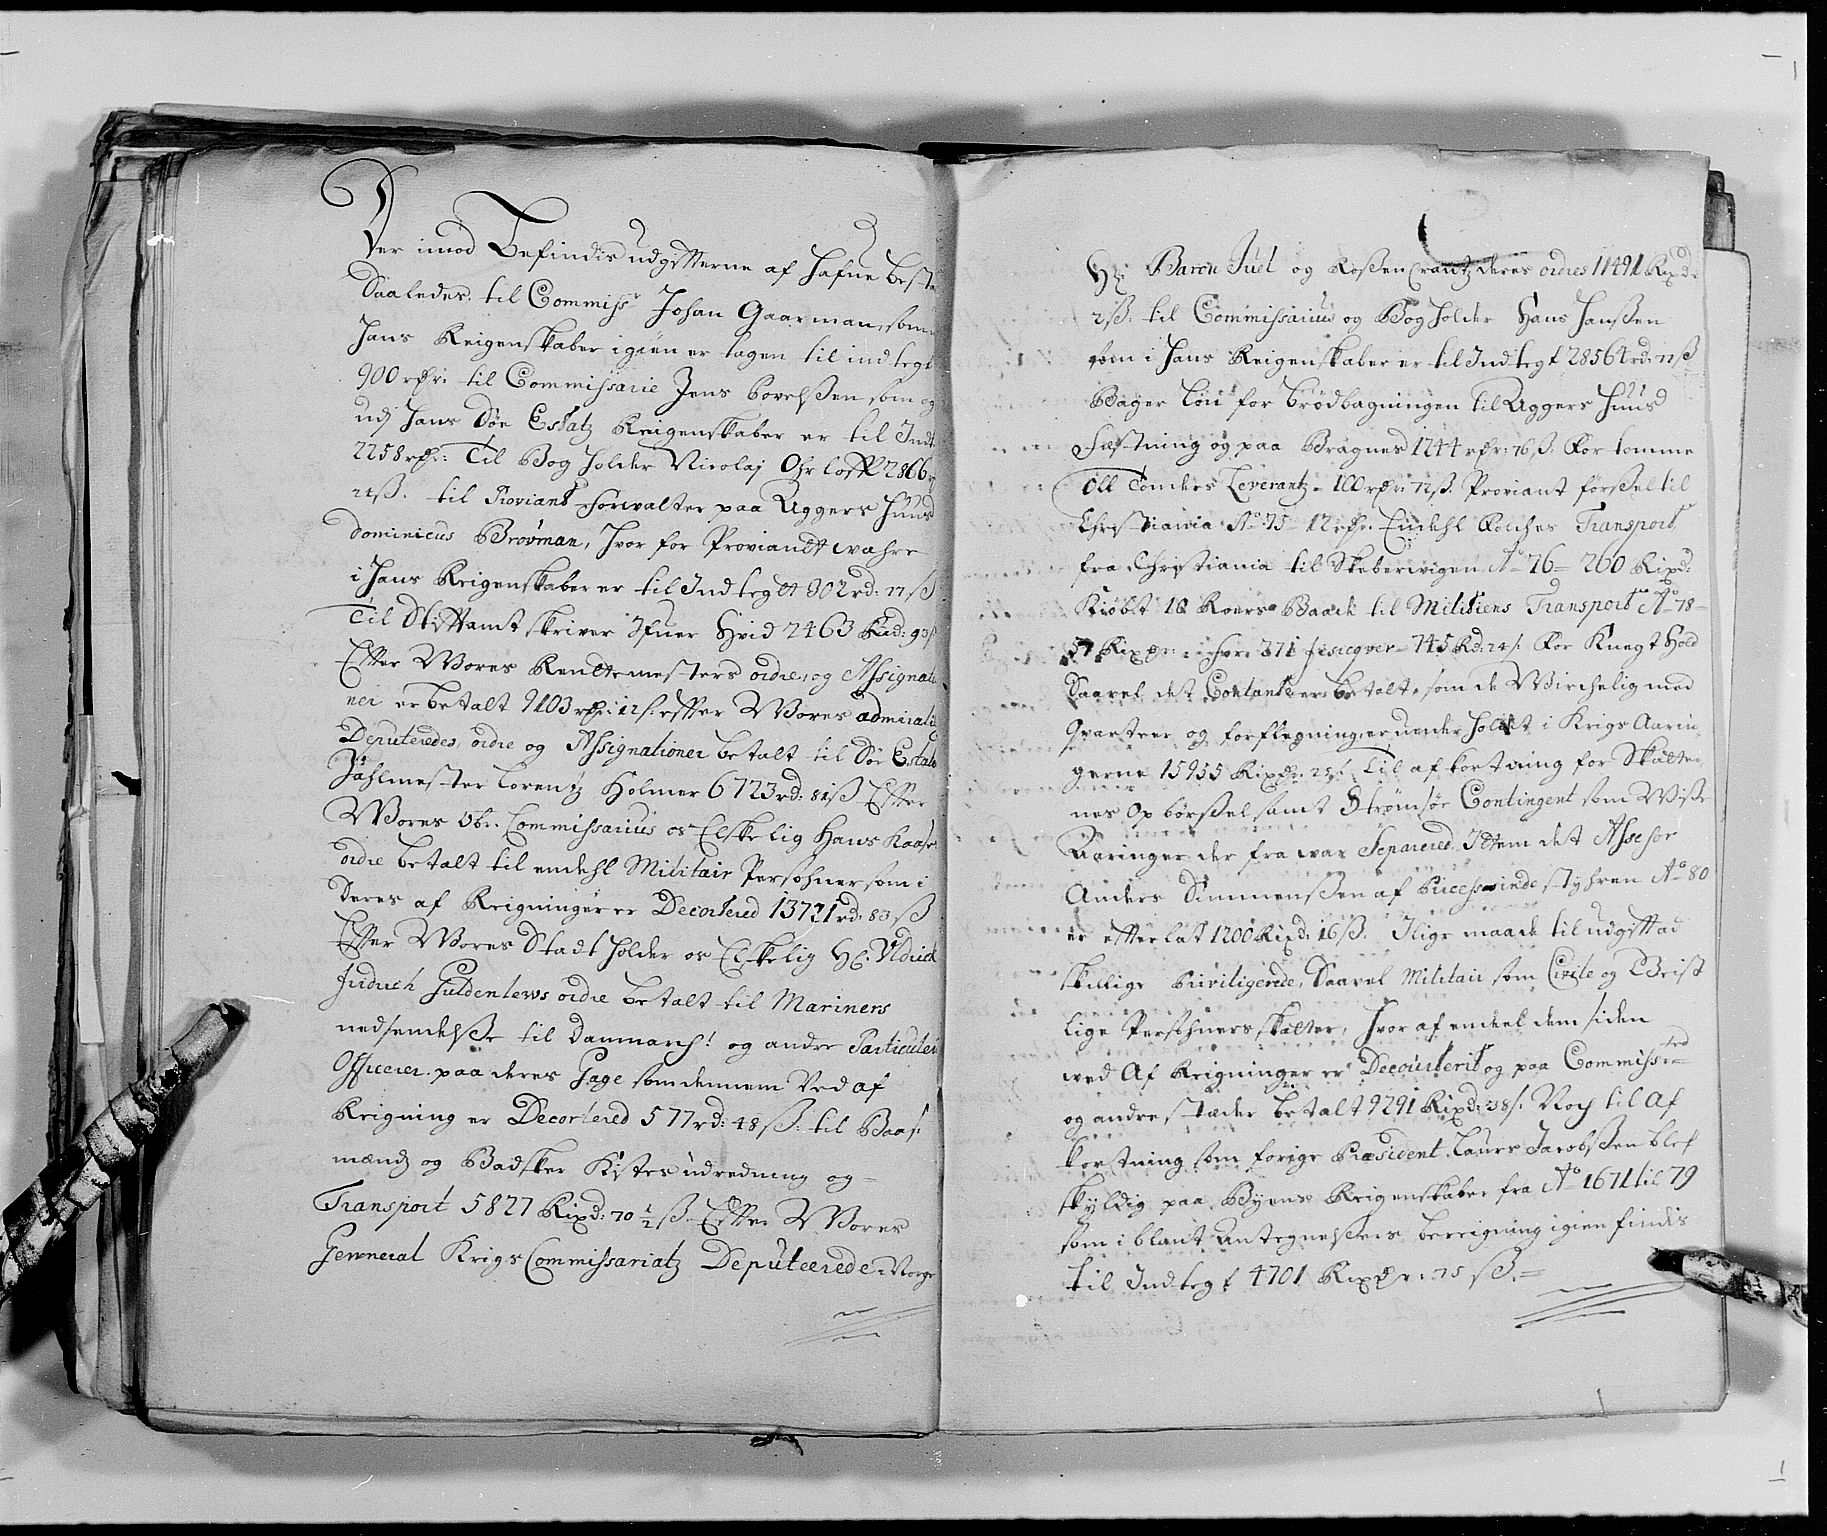 Der imod Befindis udgifterne af hafue besta
Saaledes. til Commiss: Johan Gaarman, som
hans Reigenskaber igien er tagen til indtegt
900 rdr: til Commissarie Jens Bovelßen som og
udj hans Søe Estatz Reigenskaber er til Indt
2258 rdr: Til Bogholder Nicolaj Ohrloff 2866 r
ß. til Proviant forvalter paa Aggers Huus
Dominicus Brovman, hvor for Proviandt wahre
i hans Reigenskaber er til Indtegt 902 rd: 77 ß
Til Stiftamtskriver Ifuer Hvid 2463 Rixd: 93 ß
Efter Wores Rendtemesters ordre, og Assignatio
ner er betalt 9103 rdr: 12 ß. efter Wores admiralit
Deputeredes, ordre og Assignationer betalt til Søe Estats
Zahlmester Lorentz Holmer 6723 rd: 81 ß Efter
Wores Obr. Commissarius os Elskelig Hans Kaas
ordre betalt til endehl Militair Persohner som i
deres af Reigninger er Decortered 13721 rd: 83 ß
Efter Wores Stadtholder os Elskelig Hr. Uldrich
Fridrich Guldenlews ordre betalt til Mariners
nedsendelße til Danmarch! og andre Particulier
Officerer paa deres Gage som dennem Ved af
Reigning er Decortered 577 rd: 48 ß: til Baas
mænd og Badsker Kister udredning og =
Transport 5827 Rixd: 70 1/2 ß Efter Wores
General Krigs Commissariatz Deputeerede i Norge
Hr: Baron Juel og Roßencrantz deres ordres 11491 Rixd:
2 ß. til Commissarius og Bogholder Hans Hanßen
som i hans Reigenskaber er til Indtegt 28564 rd: 77 ß
Bager Løn for brødbagningen til Aggers Huus
Fæstning og paa Bragnes 1244 rdr: 76 ß. For tomme
Øll Tønders Leverantz = 100 rdr: 72 ß. Proviant førßel til
Christiania Ao. 75 = 12 rdr. Endehl Folches Transport
fra Christiania til Skeberwigen Ao 76 = 260 Rixd:
Kiøbt 10 Roers Baade til Militiens Transport Ao 78 =
57 Rixdr: for 371 = 745 Rd: 24 ß. For Knegt Hold
Saavel det Contant er betalt, som de Wirchelig med
Qvarteer og forflegning, er underholdt i Krigs Aarin
gerne 15955 Rixdr. 24 ß. Til afkortning for Skatter
nes Opbørßel samt Strømsøe Contingent som Wiße
Aaringer der fra war Separered. Item det Assessor
Anders Simmenßen af Bucesswinde styhren Ao 80
er efterlat 1200 Rixd: 16 ß. Ilige maade til udgift ad
skillige Privilligerede, Saavel Militair som Civile og Geist
lige Persohners skatter, hvor af endeel dem siden
wed Af Reigninger er Decourterit og paa Commiss:
og andre stæder betalt 9291 Rixd: 38 ß. Noch til Af
kortning som forige Præsident Laurs Jacobßen blef
skyldig paa Byens Reigenskaber fra Ao 1671 til 79
som i blant Antegnelßers bereigning igien findis
til Indtegt 4701 Rixdr: 75 ß. =